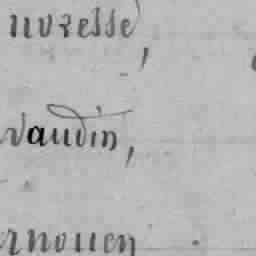 nozesse,
vaudin,
ernouen